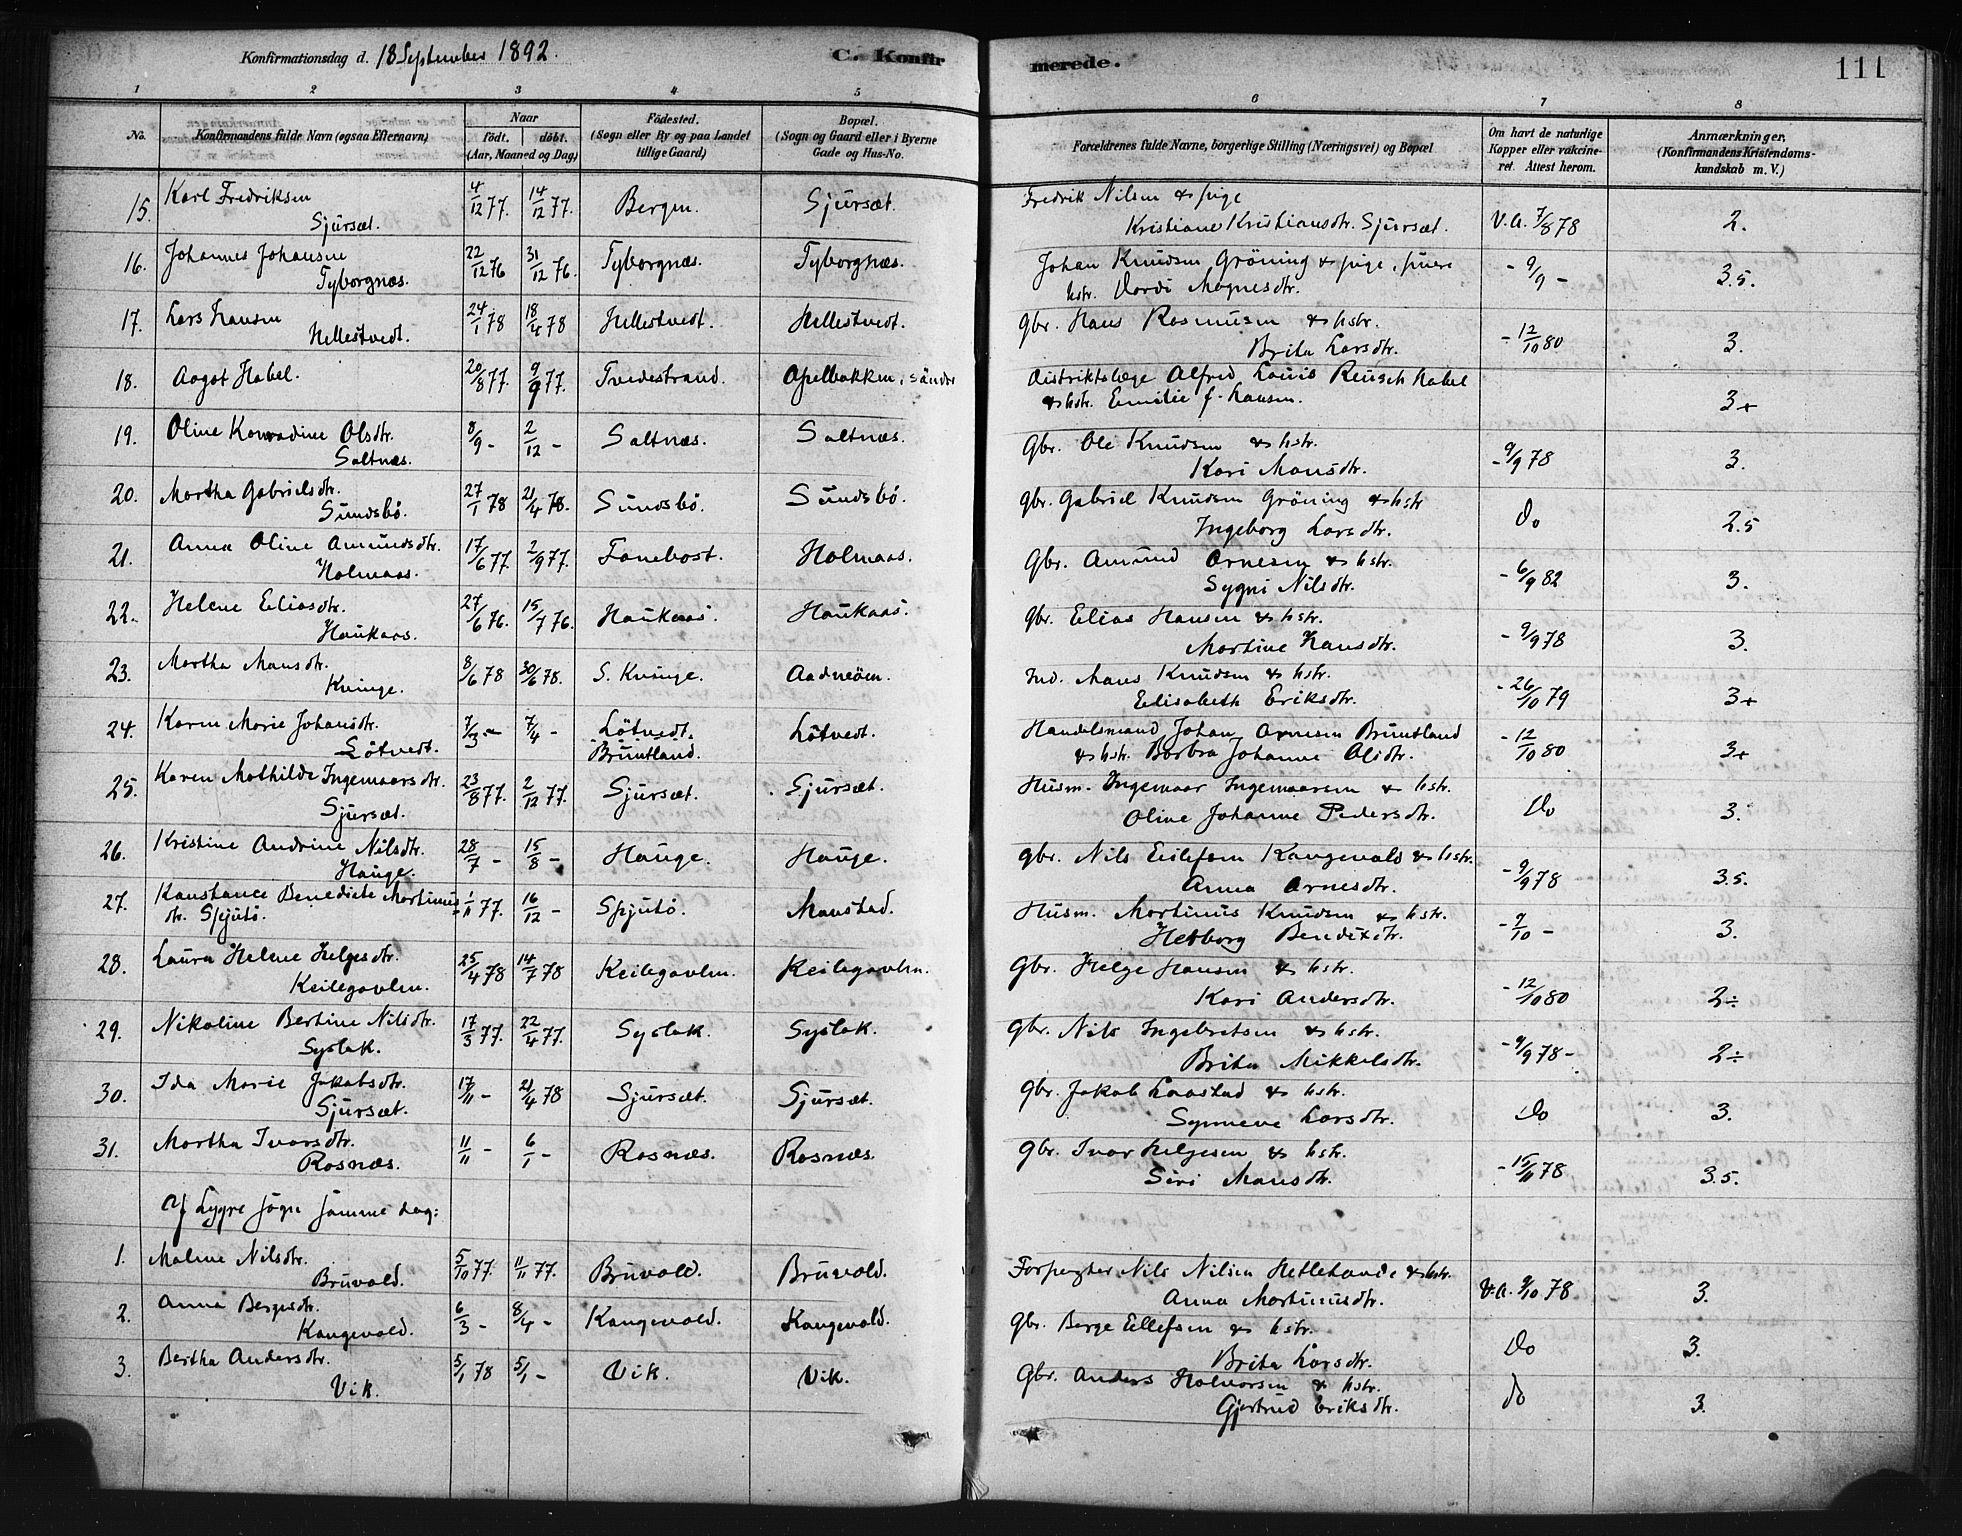 Konfirmationsdag d. 18 September 1892. C. Konfirmerede. 111
1 2 3 4 5 6 7 8
No. Konfirmandens fulde Navn (ogsaa Efternavn) Naar födt. döbt. (Aar, Maaned og Dag) Födested. (Sogn eller By og paa Landet tillige Gaard) Bopæl. (Sogn og Gaard eller i Byerne Gade og Hus-No. Forældrenes fulde Navne, borgerlige Stilling (Næringsvei) og Bopæl Om havt de naturlige Kopper eller vaccineret. Attest herom. Anmærkninger, (Konfirmandens Kristendomskundskab m. V.)
15. Karl Fredriksen 4/12 77. 14/12 77. Bergen. Sjursæt. Fredrik Nilsen & pige
Sjursæt. Kristiane Kristiansdtr. Sjursæt. V.A. 7/8 78 2.
16. Johannes Johansen 22/12 76 31/12 76. Tyborgnæs. Tyborgnæs. Johan Knudsen Gröning & pige,
Tyborgnæs. hstr. Vordi Magnesdtr. - 9/9 - 3.5.
17. Lars Hansen 24/1 78 18/4 78 Hellestvedt. Hellestvedt. Gbr. Hans Rasmusen & hstr.
Hellestvedt. Brita Larsdtr. - 12/10 80 3.
18. Aagot Habel. 20/8 77. 9/9 77. Tvedestrand. Apelbakken, Distriktslæge Alfred Louis Reusch Habel
& hstr. Emilie f. Hansen. 3+
19. Oline Konradine Olsdtr. 8/9 - 2/12 - Saltnæs. Saltnæs. Gbr. Ole Knudsen & hstr.
Saltnæs. Kari Mansdtr. - 9/9 78 3.
20. Martha Gabrielsdtr. 27/1 78 21/4 78. Sundsbö. Sundsbö. Gbr. Gabriel Knudsen Gröning & hstr
Sundsbö. Ingeborg Larsdtr. Do 2.5
21. Anna Oline Amundsdtr. 17/6 77. 2/9 77. Tonebost. Holmaas. Gbr. Amund Arnesen & hstr.
Holmaas. Sygni Nilsdtr. - 6/9 82 3.
22. Helene Eliasdtr. 27/6 76. 15/7 76. Haukaas. Haukaas. Gbr. Elias Hansen & hstr.
Haukaas. Martine Hansdtr. - 9/9 78 3.
23. Martha Mansdtr. 8/6 78 30/6 78. S. Kvinge. Aadneöen. Ind. Mans Knudsen & hstr.
Kvinge. Elisabeth Eriksdtr. - 26/10 79 3+
24. Karen Marie Johansdtr. 7/3 - 7/4 - Lötvedt. Lötvedt. Handelsmand Johan Arnesen Bruntland
Lötvedt. Bruntland. & hstr. Barbra Johanne Olsdtr. - 12/10 80 3+
25. Karen Mathilde Ingemaarsdtr. 23/8 77. 2/12 77. Sjursæt. Sjursæt. Husm. Ingemaar Ingemaarsen & hstr.
Sjursæt. Oline Johanne Pedersdtr. Do 3.
26. Kristine Andrine Nilsdtr. 28/7 - 15/8 - Hauge. Hauge. Gbr. Nils Eilefsen Kangevald & hstr.
Hauge. Anna Arnesdtr. - 9/9 78 3.5.
27. Konstance Benedicte Martinus- 1/11 77. 16/12 - Spjutö. Manstad. Husm. Martinus Knudsen & hstr.
dtr. Spjutö. Herborg Bendixdtr. - 9/10 - 3.
28. Laura Helene Helgesdtr. 25/4 78 14/7 78 Keilegavlen. Keilegavlen. Gbr. Helge Hansen & hstr.
Keilegavlen. Kari Andersdtr. - 12/10 80 2÷
29. Nikoline Bertine Nilsdtr. 17/3 77. 22/4 77. Syslak. Syslak. Gbr. Nils Ingebretsen & hstr.
Syslak. Brita Mikkelsdtr. - 9/9 78 - 2÷
30. Ida Marie Jakobsdtr. 17/11 - 21/4 78 Sjursæt. Sjursæt. Gbr. Jakob Laastad & hstr.
Sjursæt. Synneve Larsdtr. Do 3.
31. Martha Ivarsdtr. 11/11 - 6/1 - Rosnæs. Rosnæs. Gbr. Ivar Helgesen & hstr.
Rosnæs. Siri Mansdtr. - 15/11 78 3.5.
Af Lygre Sogn samme dag:
1. Malene Nilsdtr. 5/10 77. 11/11 77. Bruvold. Bruvold. Forpagter Nils Nilsen Hetlehavde & hstr.
Bruvold. Anna Martinusdtr. V.A. 9/10 78 3.
2. Anna Bergesdtr. 6/3 - 8/4 - Kangevald. Kangevald. Gbr. Berge Ellefsen & hstr.
Kangevald. Brita Larsdtr. Do 3.
3. Bertha Andersdtr. 5/1 78 5/1 - Vik. Vik. Gbr. Anders Halvorsen & hstr.
Vik. Gjertrud Eriksdtr. do 3.